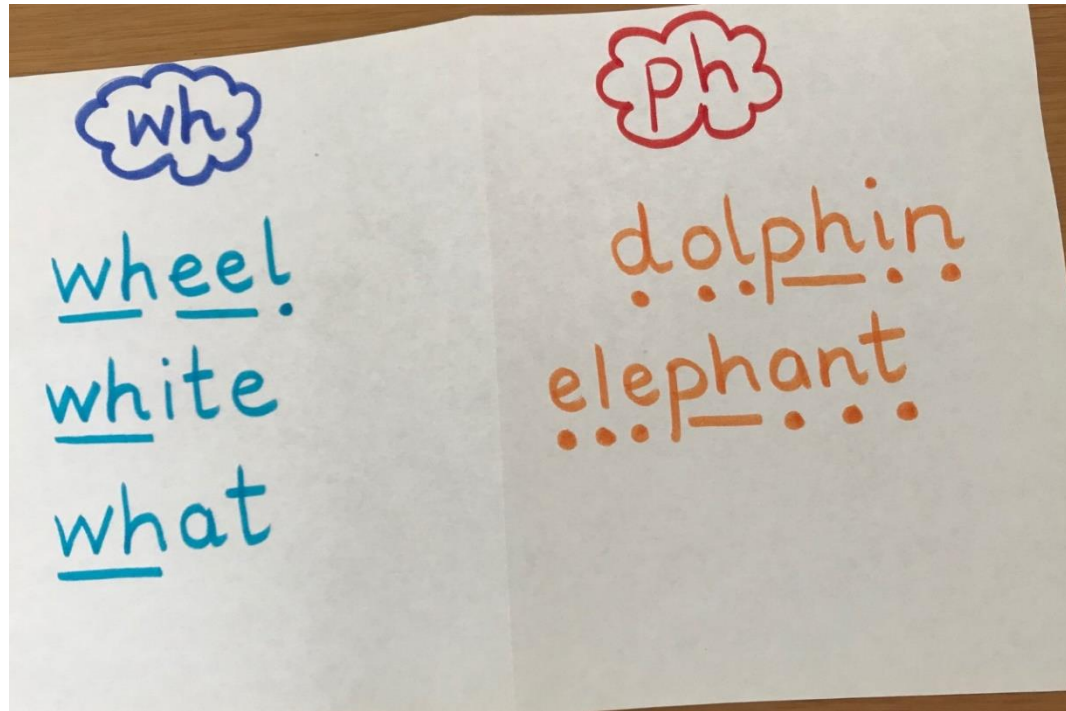 wh
wheel
white
what
ph
dolphin
elephant